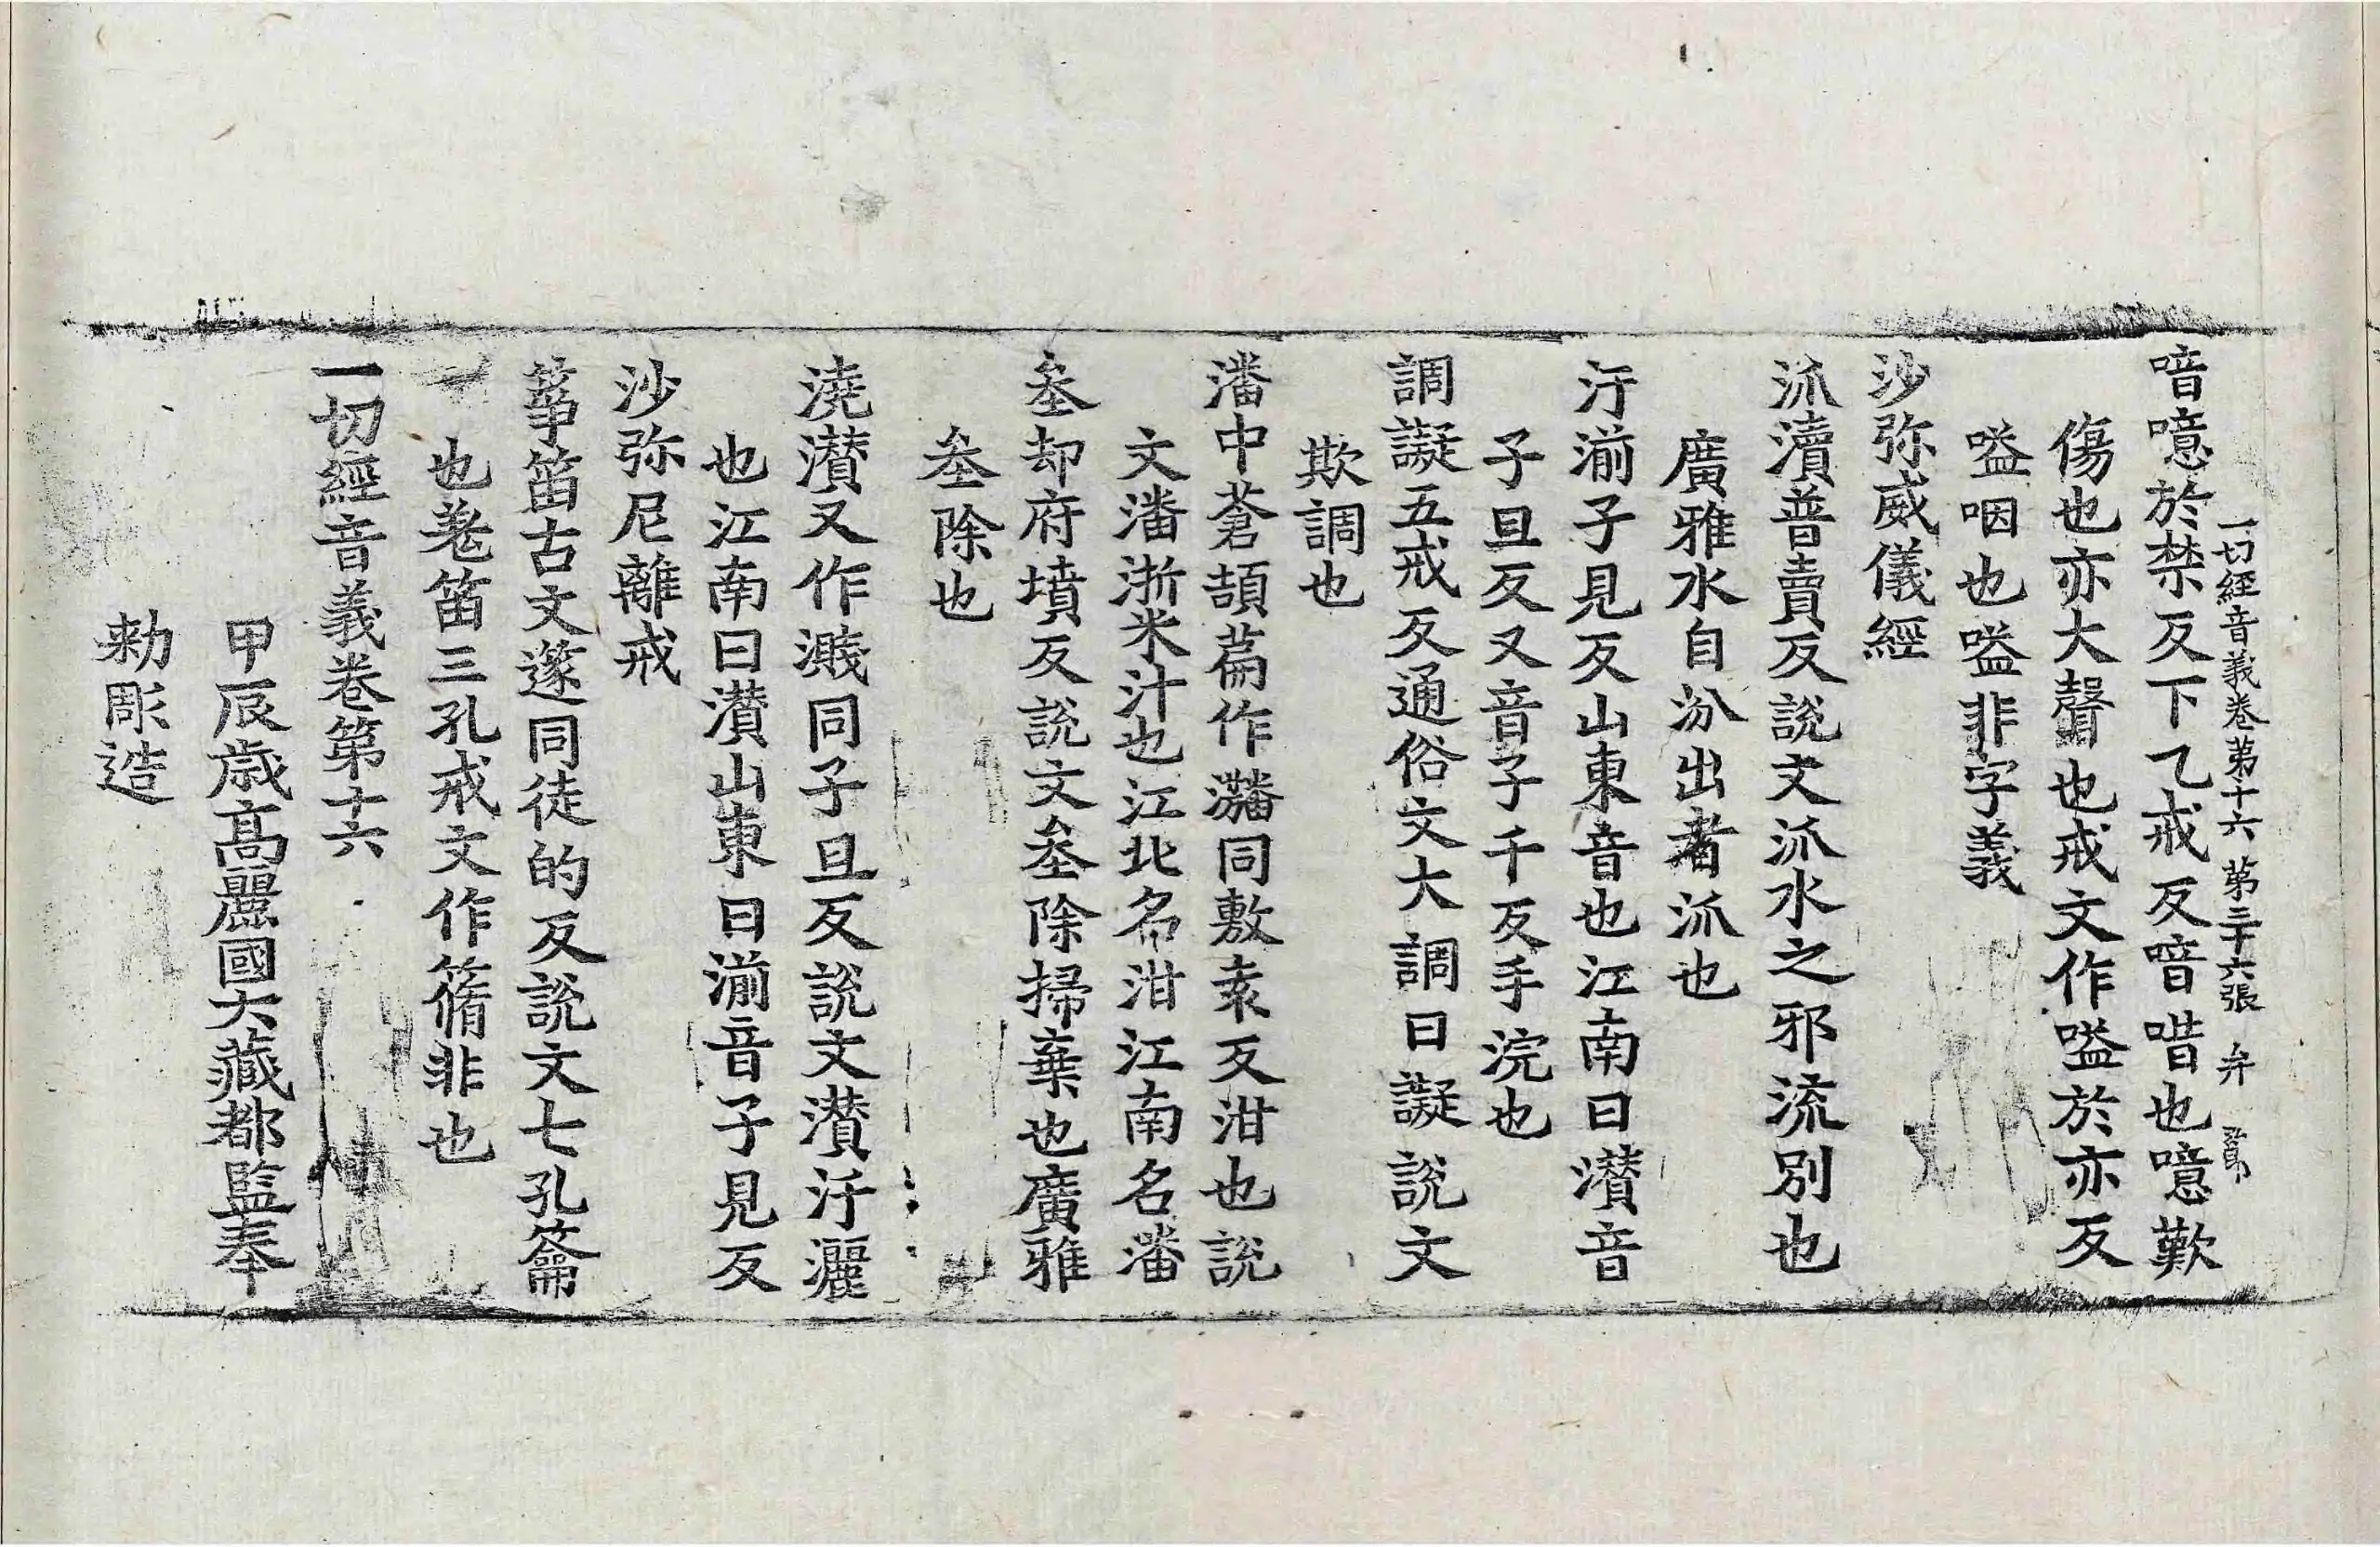 一切經音義卷第十六 第三十六張 弁
喑噫於禁反下乙戒反喑唶也噫歎
傷也亦大聲也戒文作嗌於亦反
嗌咽也嗌非字義
沙弥威儀經
派瀆普賣反說文派水之邪流別也
廣雅水自汾出者派也
汙湔子見反山東音也江南曰灒音
子旦反又音子千反手浣也
調譺五戒反通俗文大調曰譺說文
欺調也
潘中蒼頡篇作𤄜同敷袁反泔也說
文潘淅米汁也江北名泔江南名潘
坌却府墳反說文坌除掃棄也廣雅
坌除也
澆灒又作濺同子旦反說文灒汙灑
也江南曰灒山東曰湔音子見反
沙弥尼離戒
箏笛古文篴同徒的反說文七孔籥
也羗笛三孔戒文作篟非也
一切經音義卷第十六
甲辰歲高麗國大藏都監奉
勅彫造